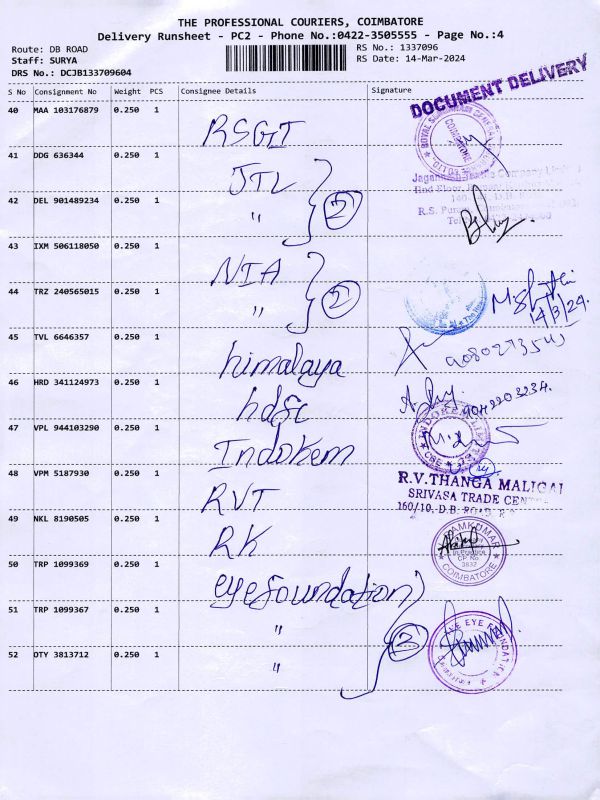 THE PROFESSIONAL COURIERS, COIMBATORE
Delivery Runsheet - PC2 - Phone No.:0422-3505555 - Page No.:4
Route: DB ROAD RS No.: 1337096
Staff: SURYA RS Date: 14-Mar-2024
DRS No.: DCJB133709604
S No Consignment No Weight PCS Consignee Details Signature
DOCUMENT DELIVERY
40 MAA 103176879 0.250 1
RSGI
41 DDG 636344 0.250 1
JTL
42 DEL 901489234 0.250 1
" 2
43 IXM 506118050 0.250 1
NIA
44 TRZ 240565015 0.250 1
" 2
14/3/24.
45 TVL 6646357 0.250 1
himalaya
46 HRD 341124973 0.250 1
hdfc
47 VPL 944103290 0.250 1
Indokem
48 VPM 5187930 0.250 1
RVT
R.V.THANGA MALIGAI
SRIVASA TRADE
160/10, D.B. ROAD,
49 NKL 8190505 0.250 1
RK
RAMKUMAR
COIMBATORE
50 TRP 1099369 0.250 1
eyefoundation
51 TRP 1099367 0.250 1
" 3
EYE FOUNDATION
52 OTY 3813712 0.250 1
"